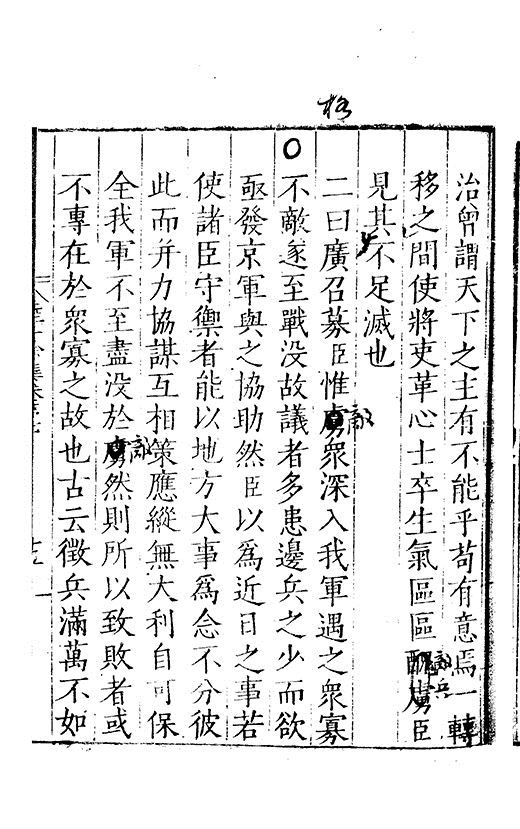 格
治曾謂天下之主有不能乎苟有意焉一轉
移之間使將吏革心士卒生氣區區醜虜臣
敵兵
見其不足滅也
二曰廣召募臣惟虜衆深入我軍遇之衆寡
敵
不敵遂至戰没故議者多患邊兵之少而欲
亟發京軍與之協助然臣以爲近日之事若
使諸臣守禦者能以地方大事爲念不分彼
此而并力協謀互相策應縱無大利自可保
全我軍不至盡没於虜然則所以致敗者或
敵
不專在於衆寡之故也古云徵兵滿萬不如